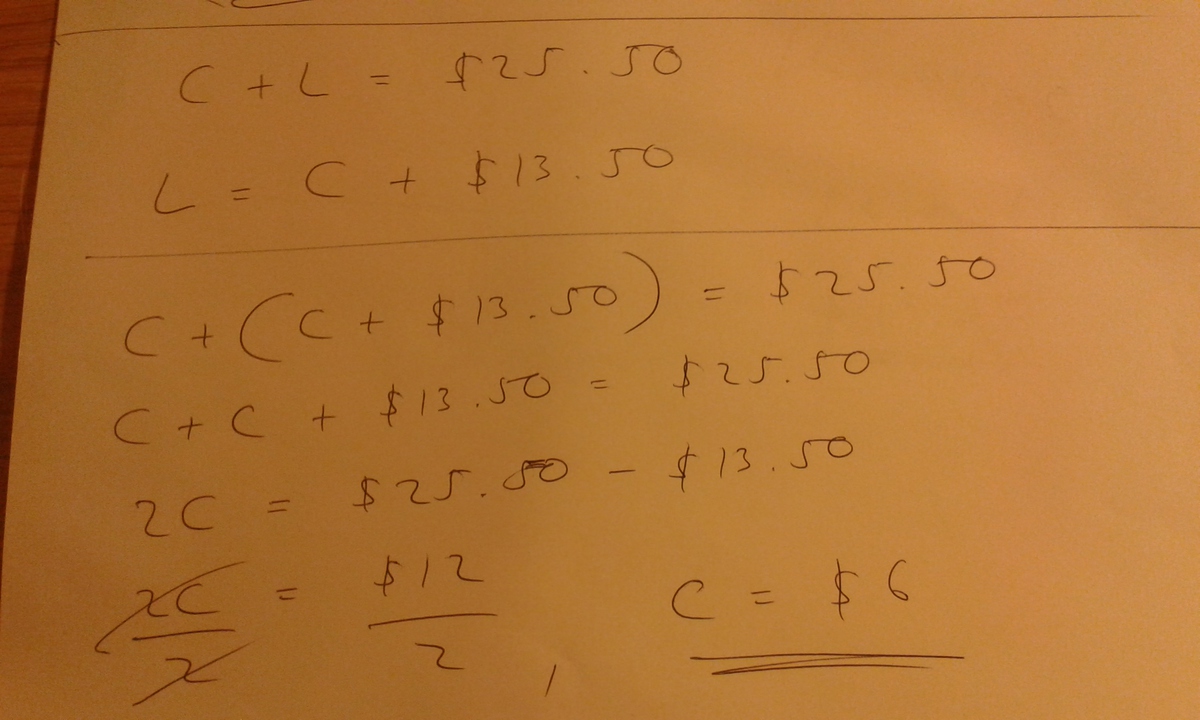 C + L = $25.50
L = C + $13.50
C + (C + $13.50) = $25.50
C + C + $13.50 = $25.50
2C = $25.50 - $13.50
2C/2 = $12/2 , C = $6